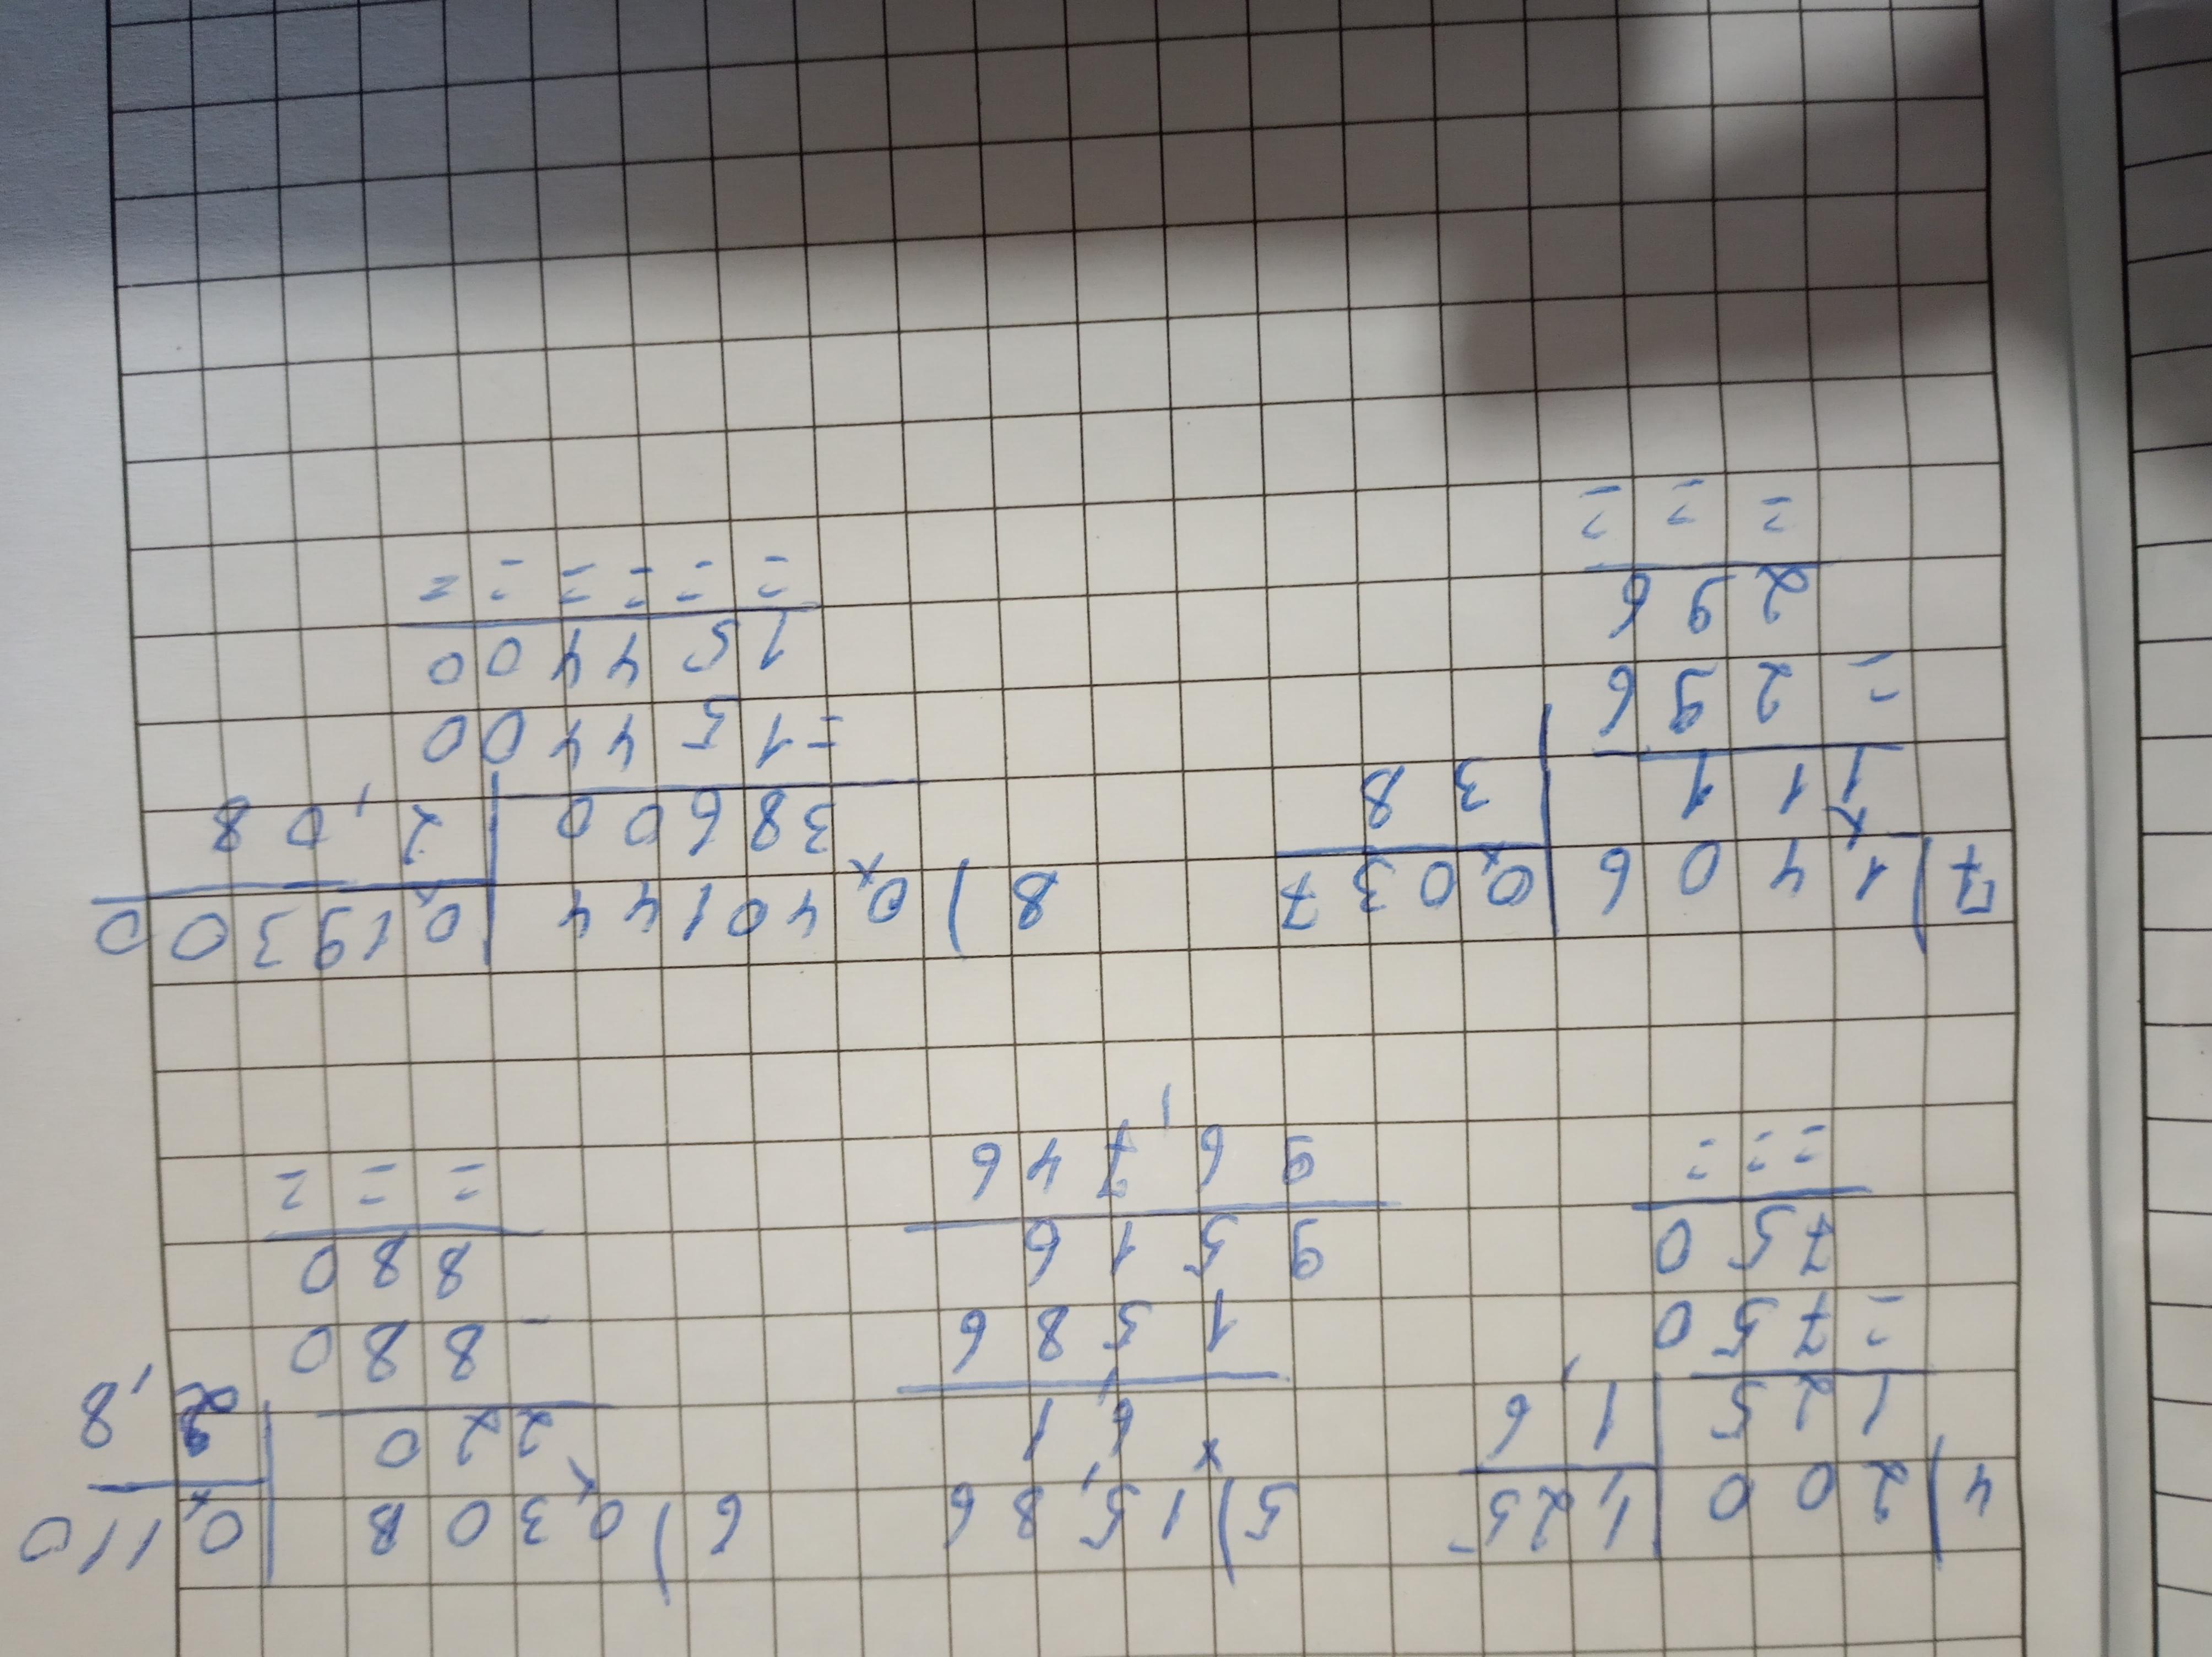 4) 200 | 1,25 5) 15,86 6) 0,308 | 0,110
125 | 1,6 x 6,1 220 | 2,8
= 750 1586 - 880
750 9516 880
= = = 96,746 = = =
7) 1,406 | 0,037 8) 0,40144 | 0,19300
111 | 38 38600 | 2,08
= 296 = 154400
296 154400
= = = = = = = = =